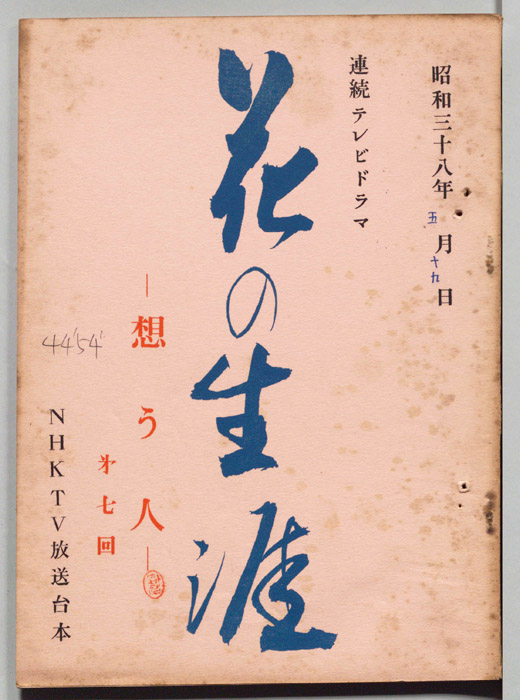 昭和三十八年五月十九日
連続テレビドラマ
花の生涯
―想う人―
㐧七回
44'54"
NHKTV放送台本